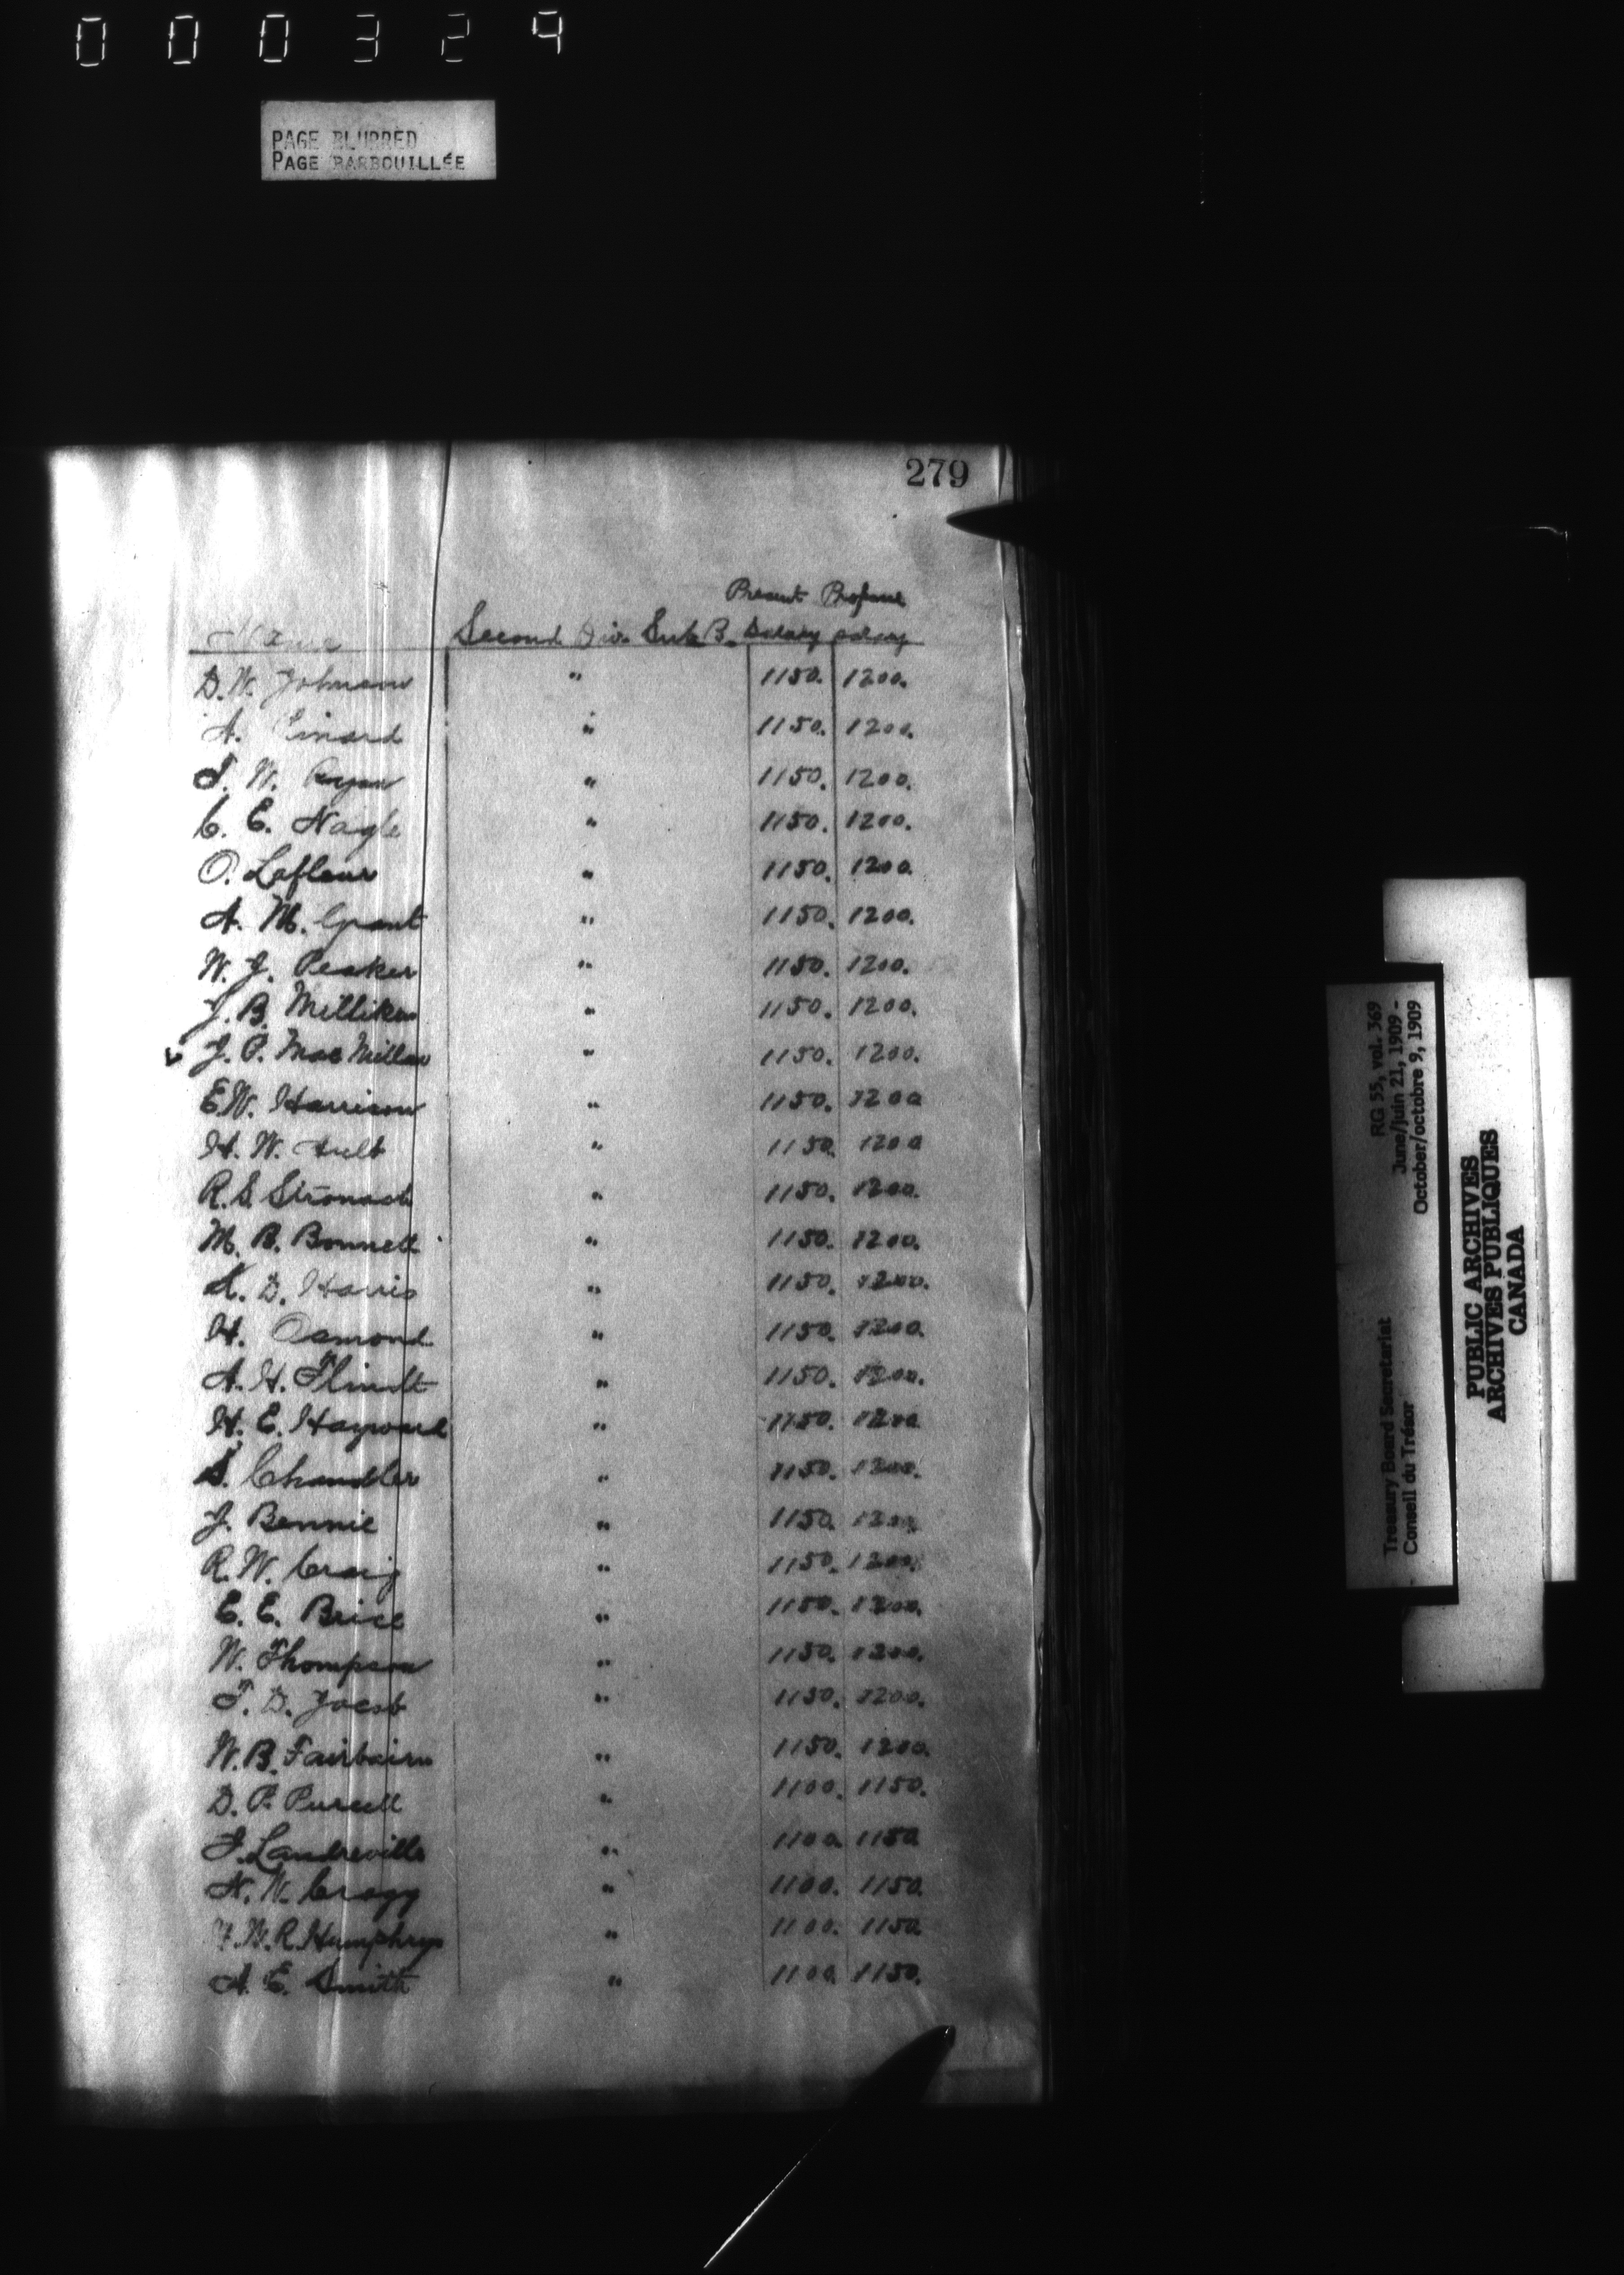 000324
PAGE BLURRED
PAGE BARBOUILLÉE
279
Present Propose
Name Second Div. Sub B. Salary salary
D. W. Johnson " 1150. 1200.
A. Pinard " 1150. 1200.
J. W. Ryan " 1150. 1200.
C. E. Nagle " 1150. 1200.
O. Lafleur " 1150. 1200
A. M. Grant " 1150. 1200.
W. J. Peaker " 1150. 1200.
J. B. Milliken " 1150. 1200.
✓ J. P. MacMillan " 1150. 1200.
E W. Harrison " 1150. 1200
H. W. Ault " 1150. 1200
R. S. Stronach " 1150. 1200.
M. B. Bonnell " 1150. 1200.
K. D. Harris " 1150. 1200.
H. Osmond " 1150. 1200.
A. H. Flindt " 1150. 1200.
H. E. Hayward " 1150. 1200
S. Chandler " 1150. 1200.
J. Bennie " 1150. 1200.
R. W. Craig " 1150. 1200.
E. E. Brice " 1150. 1200.
W. Thompson " 1150. 1200.
F. D. Jacob " 1150. 1200.
W. B. Fairbairn " 1150. 1200.
D. P. Purcell " 1100. 1150.
J. Landreville " 1100. 1150
N. N. Cragg " 1100. 1150.
B. R. Humphrys " 1100. 1150.
A. E. Smith " 1100. 1150.
RG 55, vol. 369
June/juin 21, 1909 -
October/octobre 9, 1909
Treasury Board Secretariat
Conseil du Trésor
PUBLIC ARCHIVES
ARCHIVES PUBLIQUES
CANADA